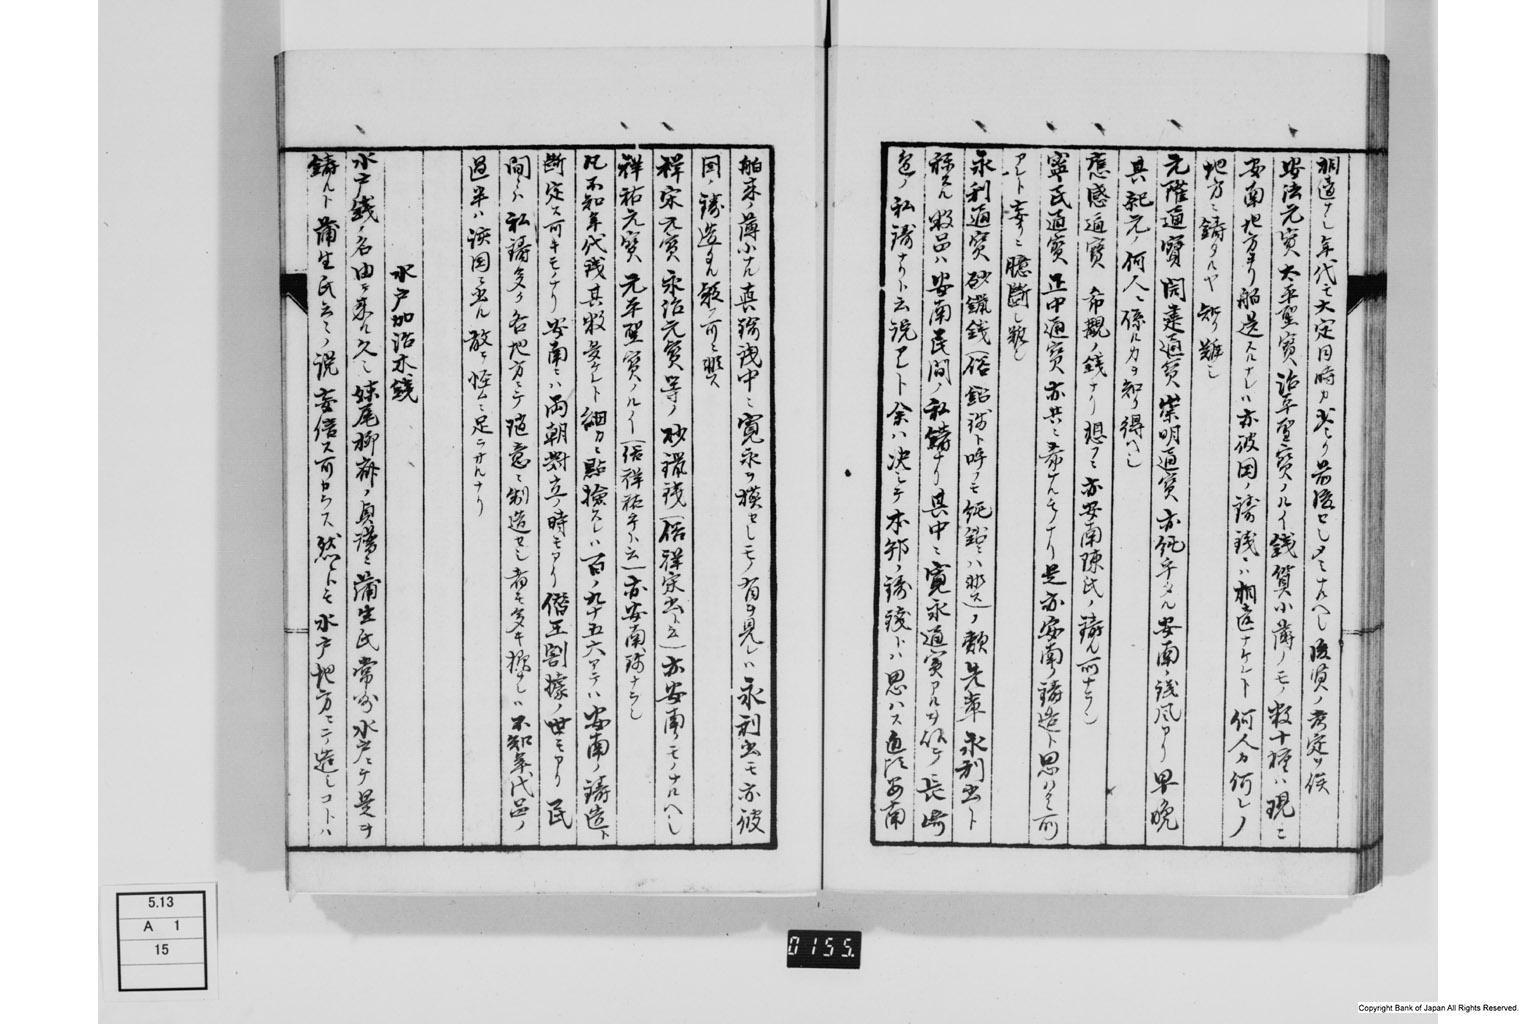 相違ナシ年代モ大定同時カ少シク前後セシメテナルヘシ後賢ノ考定ヲ俟
安法元寳太平聖寳治平聖寳ノルイ銭質小薄ノモノ数十種ハ現ニ
安南地方ヨリ舶送スルナレハ亦彼国ノ鋳銭ニハ相違ナケレト何人カ何レノ
地方ニ鋳タルヤ知リ難シ
元隆通寳開建通寳崇明通寳亦純乎タル安南ノ銭風アリ早晩
其紀元ノ何人ニ係ルカヲ知リ得ヘシ
應感通寳希觀ノ銭ナリ想フニ亦安南陳氏ノ鋳ル所ナラン
寧民通寳正中通寳亦共ニ希ナルモノナリ是亦安南ノ鋳造ト思ハルヽ所
アレト妄ニ臆斷シ難シ
永利通寳砂鑞銭(俗鉛銭ト呼フモ純鉛ニハ非ス)ノ類先輩永利出ト
称スル数品ハ安南民間ノ私鋳ナリ其中ニ寛永通寳アルヲ似テ長崎
邉ノ私鋳ナリト云説アレト余ハ决シテ本邦ノ鋳銭トハ思ハス直ニ安南
舶来ノ薄小ナル真鍮銭中ニ寛永ヲ模セシモノ有ヲ見レハ永利出モ亦彼
国ノ鋳造タル疑フ可ニ非ス
祥宋元寳永治元寳等ノ砂鑞銭(俗祥宋出ト云)亦安南ノモノナルヘシ
祥祐元寳元平聖寳ノルイ(俗祥祐手ト云)亦安南銭ナラン
凡不知年代銭其数夥ケレト細カニ點撿スレハ百ノ九十五六マテハ安南ノ鋳造ト
斷定ス可キモノナリ安南ニハ両朝對立ノ時モアリ僭王割據ノ世モアリ民
間ニハ私鋳多ク各地方ニテ随意ニ制造セシ者モ多キ様ナレハ不知年代品ノ
過半ハ該国ニ出ル敢テ怪ムニ足ラサルナリ
水戸加治木銭
水戸銭ノ名由テ来ル久シ妹尾柳斎ノ貝譜ニ蒲生氏常州水戸ニテ是ヲ
鋳ルト蒲生氏云々ノ説妄信ス可カラス然レトモ水戸地方ニテ造シコトハ
5.13
A 1
15
0155.
Copyright Bank of Japan All Rights Reserved.